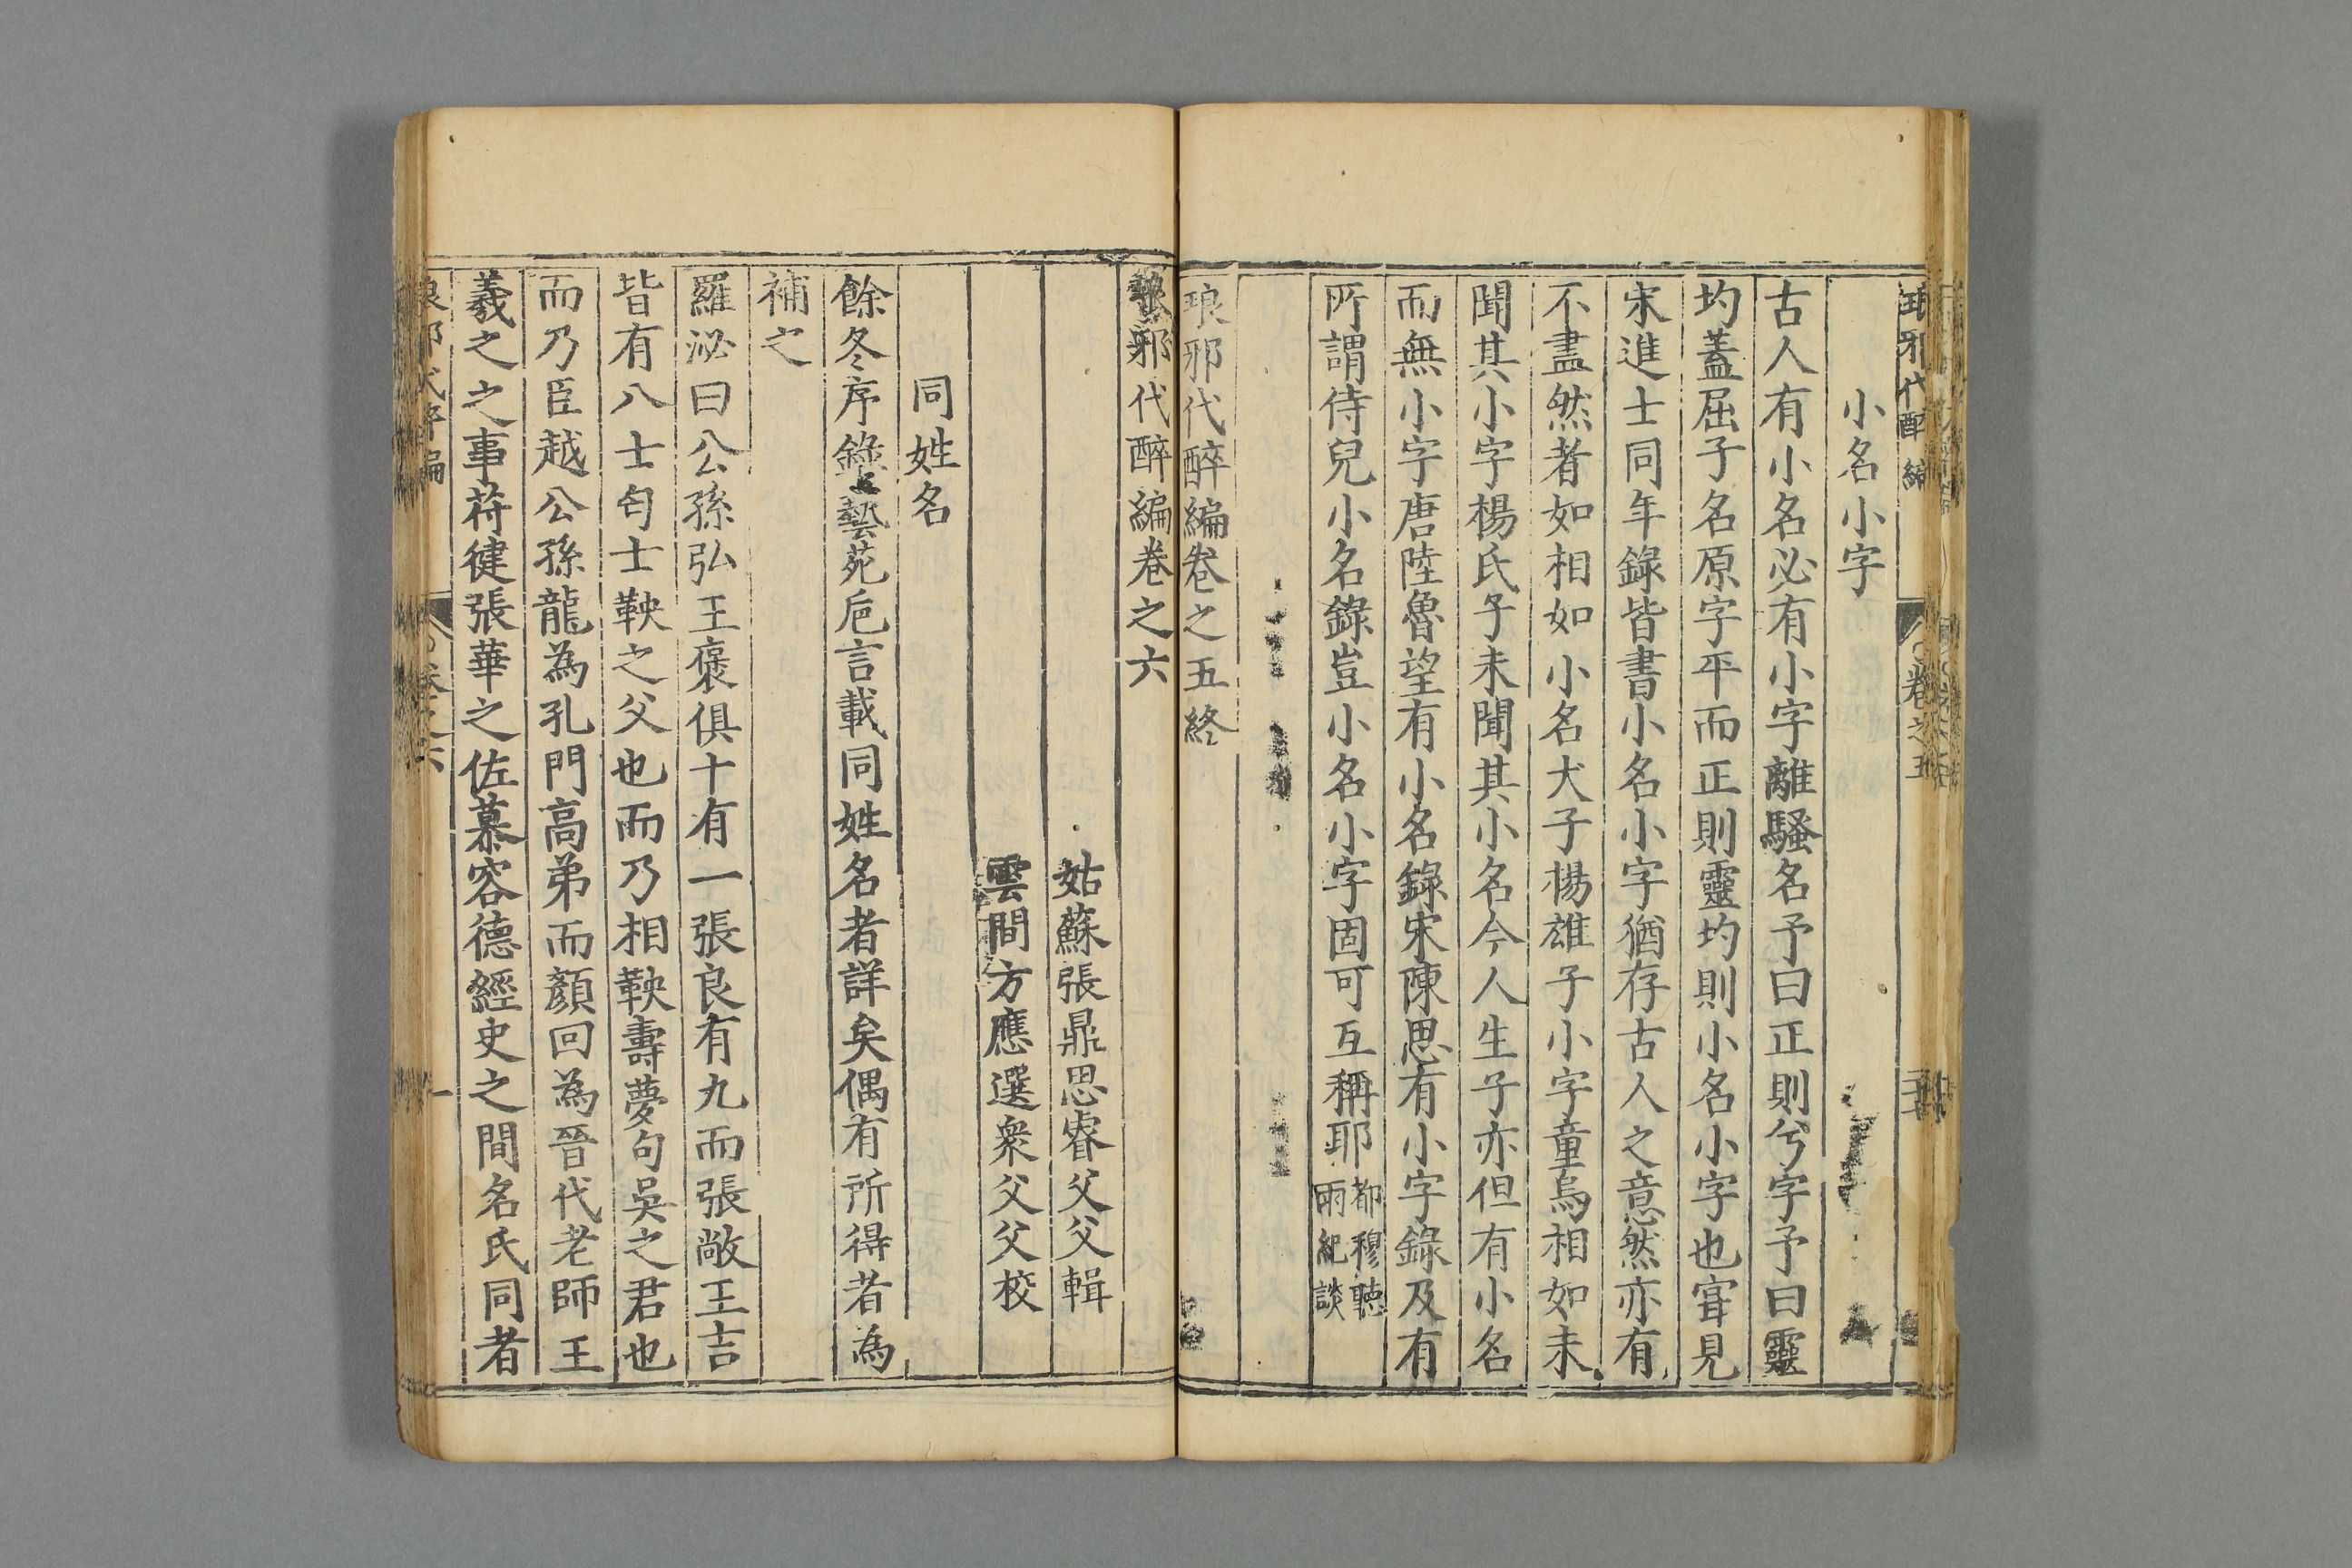 小名小字
古人有小名必有小字離騷名予曰正則兮字予曰靈
均蓋屈子名原字平而正則靈均則小名小字也甞見
宋進士同年錄皆書小名小字猶存古人之意然亦有
不盡然者如相如小名犬子楊雄子小字童烏相如未
聞其小字楊氏子未聞其小名今人生子亦但有小名
而無小字唐陸魯望有小名錄宋陳思有小字錄及有
所謂侍兒小名錄豈小名小字固可互稱耶都穆聽
雨紀談
琅邪代醉編卷之五終
琅邪代醉編
卷之五
琅邪代醉編卷之六
姑蘇張鼎思睿父父輯
雲間方應選衆父父校
同姓名
餘冬序錄藝苑巵言載同姓名者詳矣偶有所得者為
補之
羅泌曰公孫弘王褒俱十有一張良有九而張敞王吉
皆有八士匄士鞅之父也而乃相鞅壽夢句吳之君也
而乃臣越公孫龍為孔門高弟而顏回為晉代老師王
羲之之事苻健張華之佐慕容德經史之間名氏同者
琅邪代醉編
卷之六
一